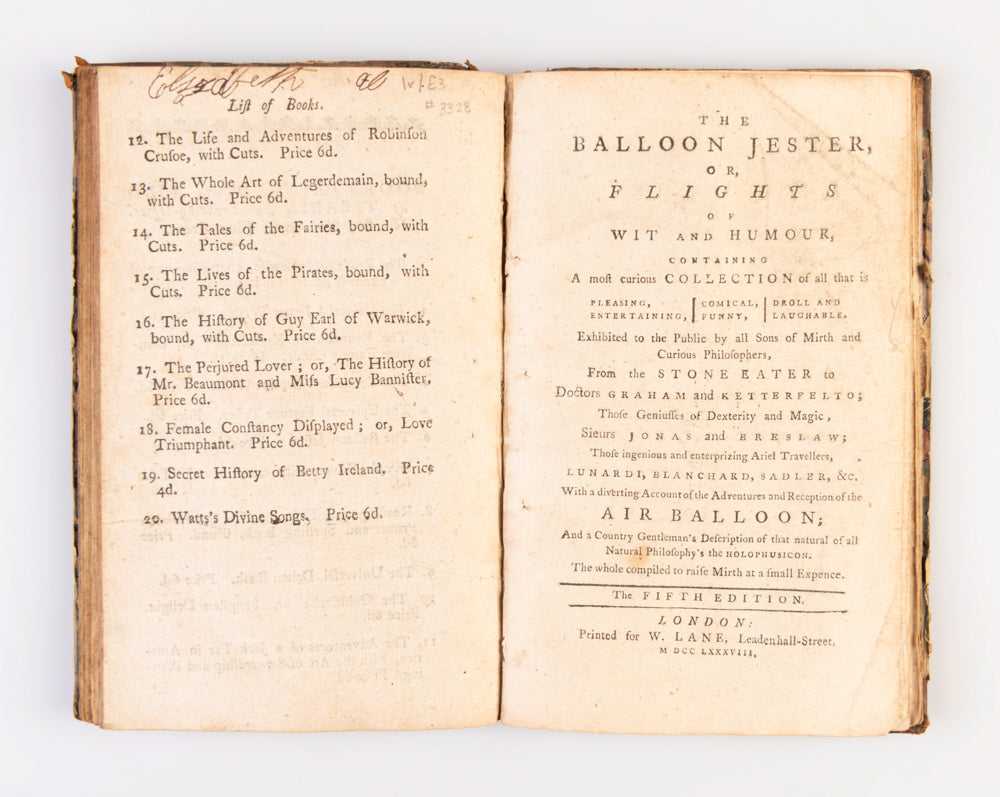 Elizabeth
1v/.E3
# 3328
Liſt of Books.
12. The Life and Adventures of Robinſon
Cruſoe, with Cuts. Price 6d.
13. The Whole Art of Legerdemain, bound,
with Cuts. Price 6d.
14. The Tales of the Fairies, bound, with
Cuts. Price 6d.
15. The Lives of the Pirates, bound, with
Cuts. Price 6d.
16. The Hiſtory of Guy Earl of Warwick,
bound, with Cuts. Price 6d.
17. The Perjured Lover; or, The Hiſtory of
Mr. Beaumont and Miſs Lucy Banniſter,
Price 6d.
18. Female Conſtancy Diſplayed; or, Love
Triumphant. Price 6d.
19. Secret Hiſtory of Betty Ireland. Price
4d.
20. Watts's Divine Songs. Price 6d.
THE
BALLOON JESTER,
OR,
FLIGHTS
OF
WIT AND HUMOUR,
CONTAINING
A moſt curious COLLECTION of all that is
PLEASING, COMICAL, DROLL AND
ENTERTAINING, FUNNY, LAUGHABLE.
Exhibited to the Public by all Sons of Mirth and
Curious Philoſophers,
From the STONE EATER to
Doctors GRAHAM and KETTERFELTO;
Thoſe Geniuſſes of Dexterity and Magic,
Sieurs JONAS and BRESLAW;
Thoſe ingenious and enterprizing Ariel Travellers,
LUNARDI, BLANCHARD, SADLER, &c.
With a diverting Account of the Adventures and Reception of the
AIR BALLOON;
And a Country Gentleman's Deſcription of that natural of all
Natural Philoſophy's the HOLOPHUSICON.
The whole compiled to raiſe Mirth at a ſmall Expence.
The FIFTH EDITION.
LONDON:
Printed for W. LANE, Leadenhall-Street.
M DCC LXXXVIII.